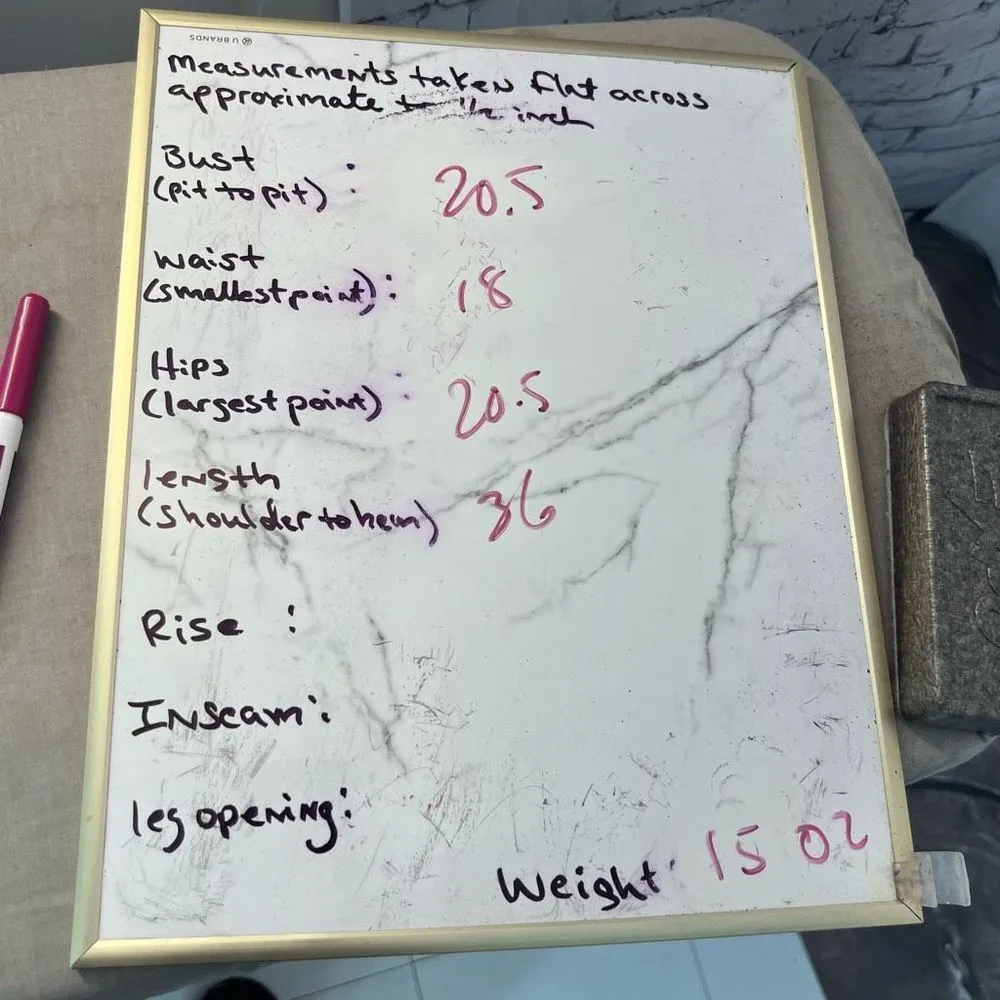 U BRANDS
Measurements taken flat across
approximate to 1/2 inch
Bust
(pit to pit) : 20.5
Waist
(smallest point) : 18
Hips
(largest point) : 20.5
length
(shoulder to hem) 36
Rise :
Inseam :
leg opening :
Weight : 15 oz